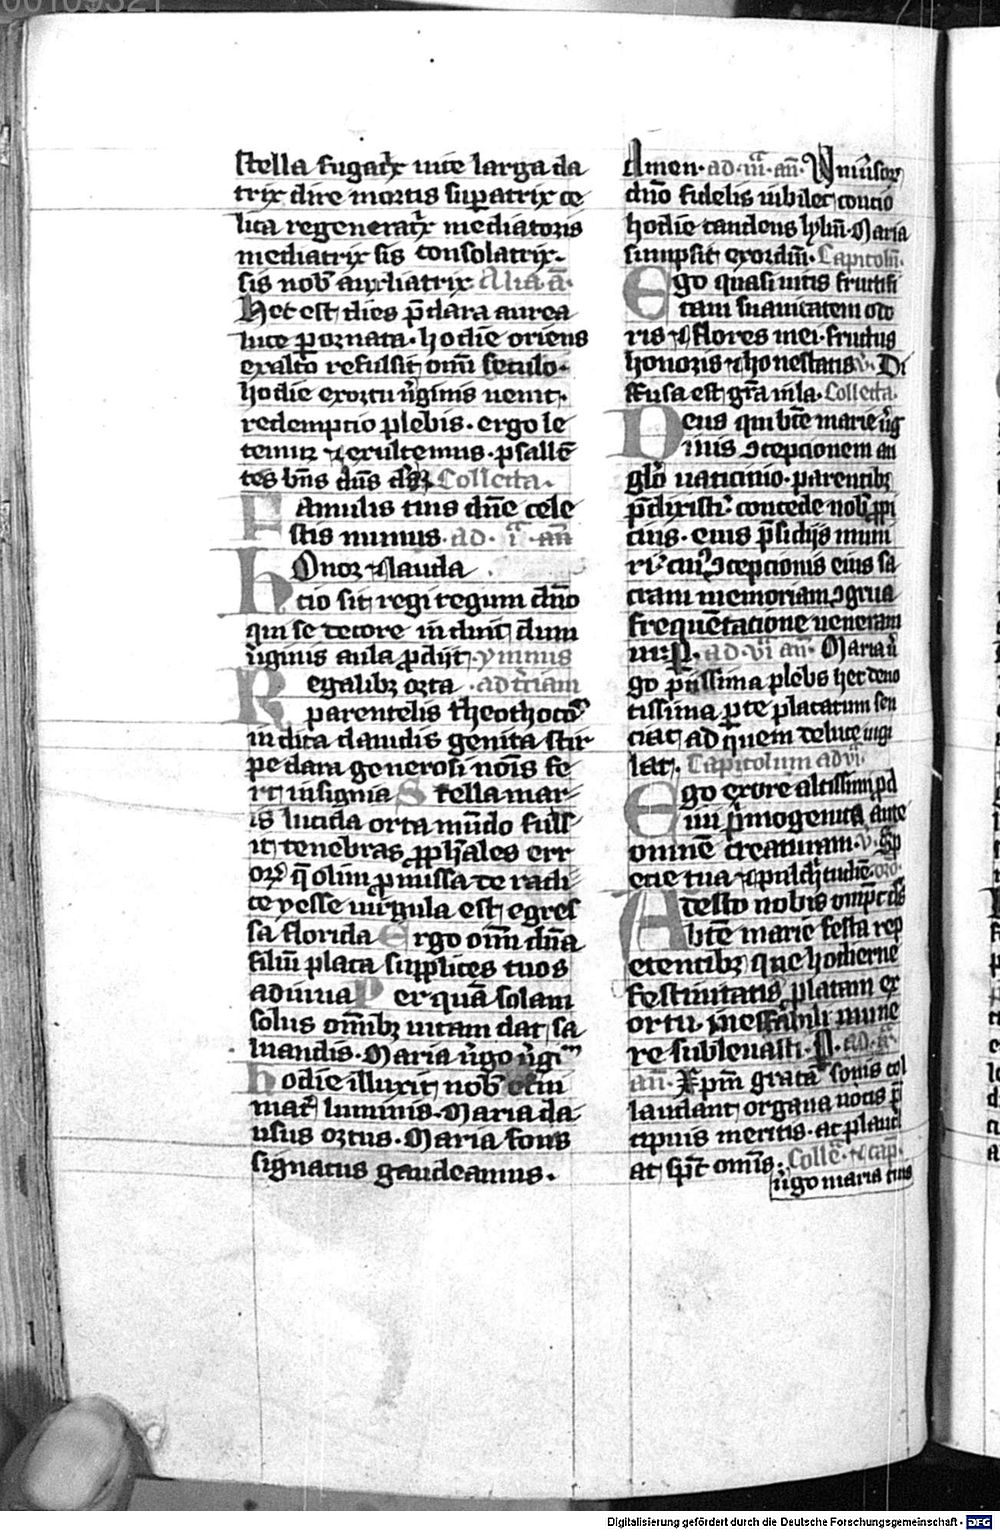 00109321
stella fugatx̄ vite larga da
trix dire mortis suꝑatrix ce
lica regeneratx̄ mediatoris
mediatrix sis consolatrix.
sis nob̄ auxiliatrix Alia.a̅.
Hec est dies p̄clara aurea
luce ꝑornata. hodie oriens
exalto refulsit om̄i seculo.
hodie exortu v̄ginis uenit.
redemptio plebis. ergo le
temur ⁊ exultemus. psallē
tes
Collecta.
Famulis tuis dn̄e cele
stis munus. ad. i. an̄
Honor ⁊ lauda
cio sit regi regum dn̄o
qui se decore induit dum
v̄ginis aula ꝓdijt. ymnus
Regalibꝫ orta. ad t̄ciam
parentelis theothocoˢ
indita dauidis genita stir
pe clara generosi nōis fe
rt insignia Stella mar
is lucida orta mūdo fulś
it tenebras ꝓph̄ales err
q̄ olim ꝓmissa de radi
ce yesse uirgula est egres
sa florida Ergo om̄m dn̄a
filiū placa supplices tuos
adiuua Per quā solam
solus om̄ibꝫ uitam dat sa
luandis. Maria v̄go
hodie illuxit nob̄
mat̄ luminis. Maria da
usus ortus. Maria fons
signatus gaudeamus.
Amen. ad. iii. an̄.
dn̄o fidelis iubilet concio
hodie candens lyliū. Maria
sumpsit exordiū. Capitolū.
Ego quasi uitis fructifi
cam suauitatem odo
ris ⁊ flores mei. fructus
honoris ⁊ honestatis v̄. Di
ffusa est gr̄a in la. Collecta.
Deus qui btē marie v̄g
inis ꝯcepcionem an
gl̄o uaticinio. parentibꝫ
p̄dixisti. concede nob̄
eius p̄sidijs muni
ꝯcepcionis eius sa
cram memoriam ꝯgrua
frequētacione ueneram
ur. P. ad vi an̄. Maria v̄
go piissima plebs hec deno
tissima ꝑ te placatum sen
ciat ad quem deluce iugi
lat. Capitolum ad vi.
Ego ex ore altissimi ꝓd
iui p̄mogenita ante
omnē creaturam. v̄. Sp
ecie tua ⁊ pulch̄tudiē.
Adesto nobis
btē marie festa rep
etentibꝫ que hodierne
festiuitatis ꝓlatam ex
ortu. ineffabili mune
re subleuasti. P. ad.
an̄. Xp̄m
laudant organa uocis
cipuis meritis. at plaud
at sp̄c omīs: Collē. ⁊ cap̄.
v̄go maria tuis
Digitalisierung gefördert durch die Deutsche Forschungsgemeinschaft - DFG